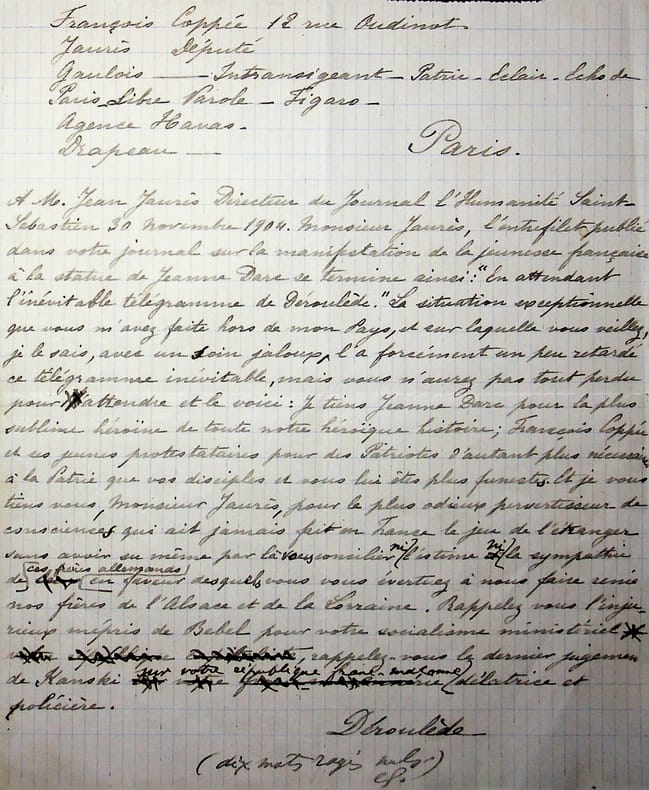 François Coppée 12 rue Oudinot
Jaurès Député
Gaulois — Intransigeant — Patrie - Eclair - Echo de
Paris - Libre Parole — Figaro —
Agence Havas -
Drapeau — Paris.
A M. Jean Jaurès Directeur du Journal l'Humanité Saint-
Sebastien 30 Novembre 1904. Monsieur Jaurès, l'entrefilet publié
dans votre journal sur la manifestation de la jeunesse française
à la statue de Jeanne Darc se termine ainsi: "En attendant
l'inévitable télégramme de Déroulède." La situation exceptionnelle
que vous m'avez faite hors de mon Pays, et sur laquelle vous veillez,
je le sais, avec un soin jaloux, l'a forcément un peu retardé
ce télégramme inévitable, mais vous n'aurez pas tout perdu
pour attendre et le voici: Je tiens Jeanne Darc pour la plus
sublime héroïne de toute notre héroïque histoire; François Coppée
et ses jeunes protestataires pour des Patriotes d'autant plus nécessaires
à la Patrie que vos disciples et vous lui êtes plus funestes. Et je vous
tiens vous, Monsieur Jaurès, pour le plus odieux pervertisseur de
consciences qui ait jamais fait en France le jeu de l'étranger
sans avoir su même par là vous concilier ni l'estime ni la sympathie
de ces frères allemands en faveur desquels vous vous évertuez à nous faire renier
nos frères de l'Alsace et de la Lorraine. Rappelez vous l'inju-
rieux mépris de Bebel pour votre socialisme ministériel
rappelez-vous le dernier jugement
de Kanski sur votre république franc-maçonne délatrice et
policière.
Déroulède
(dix mots rayés nuls)